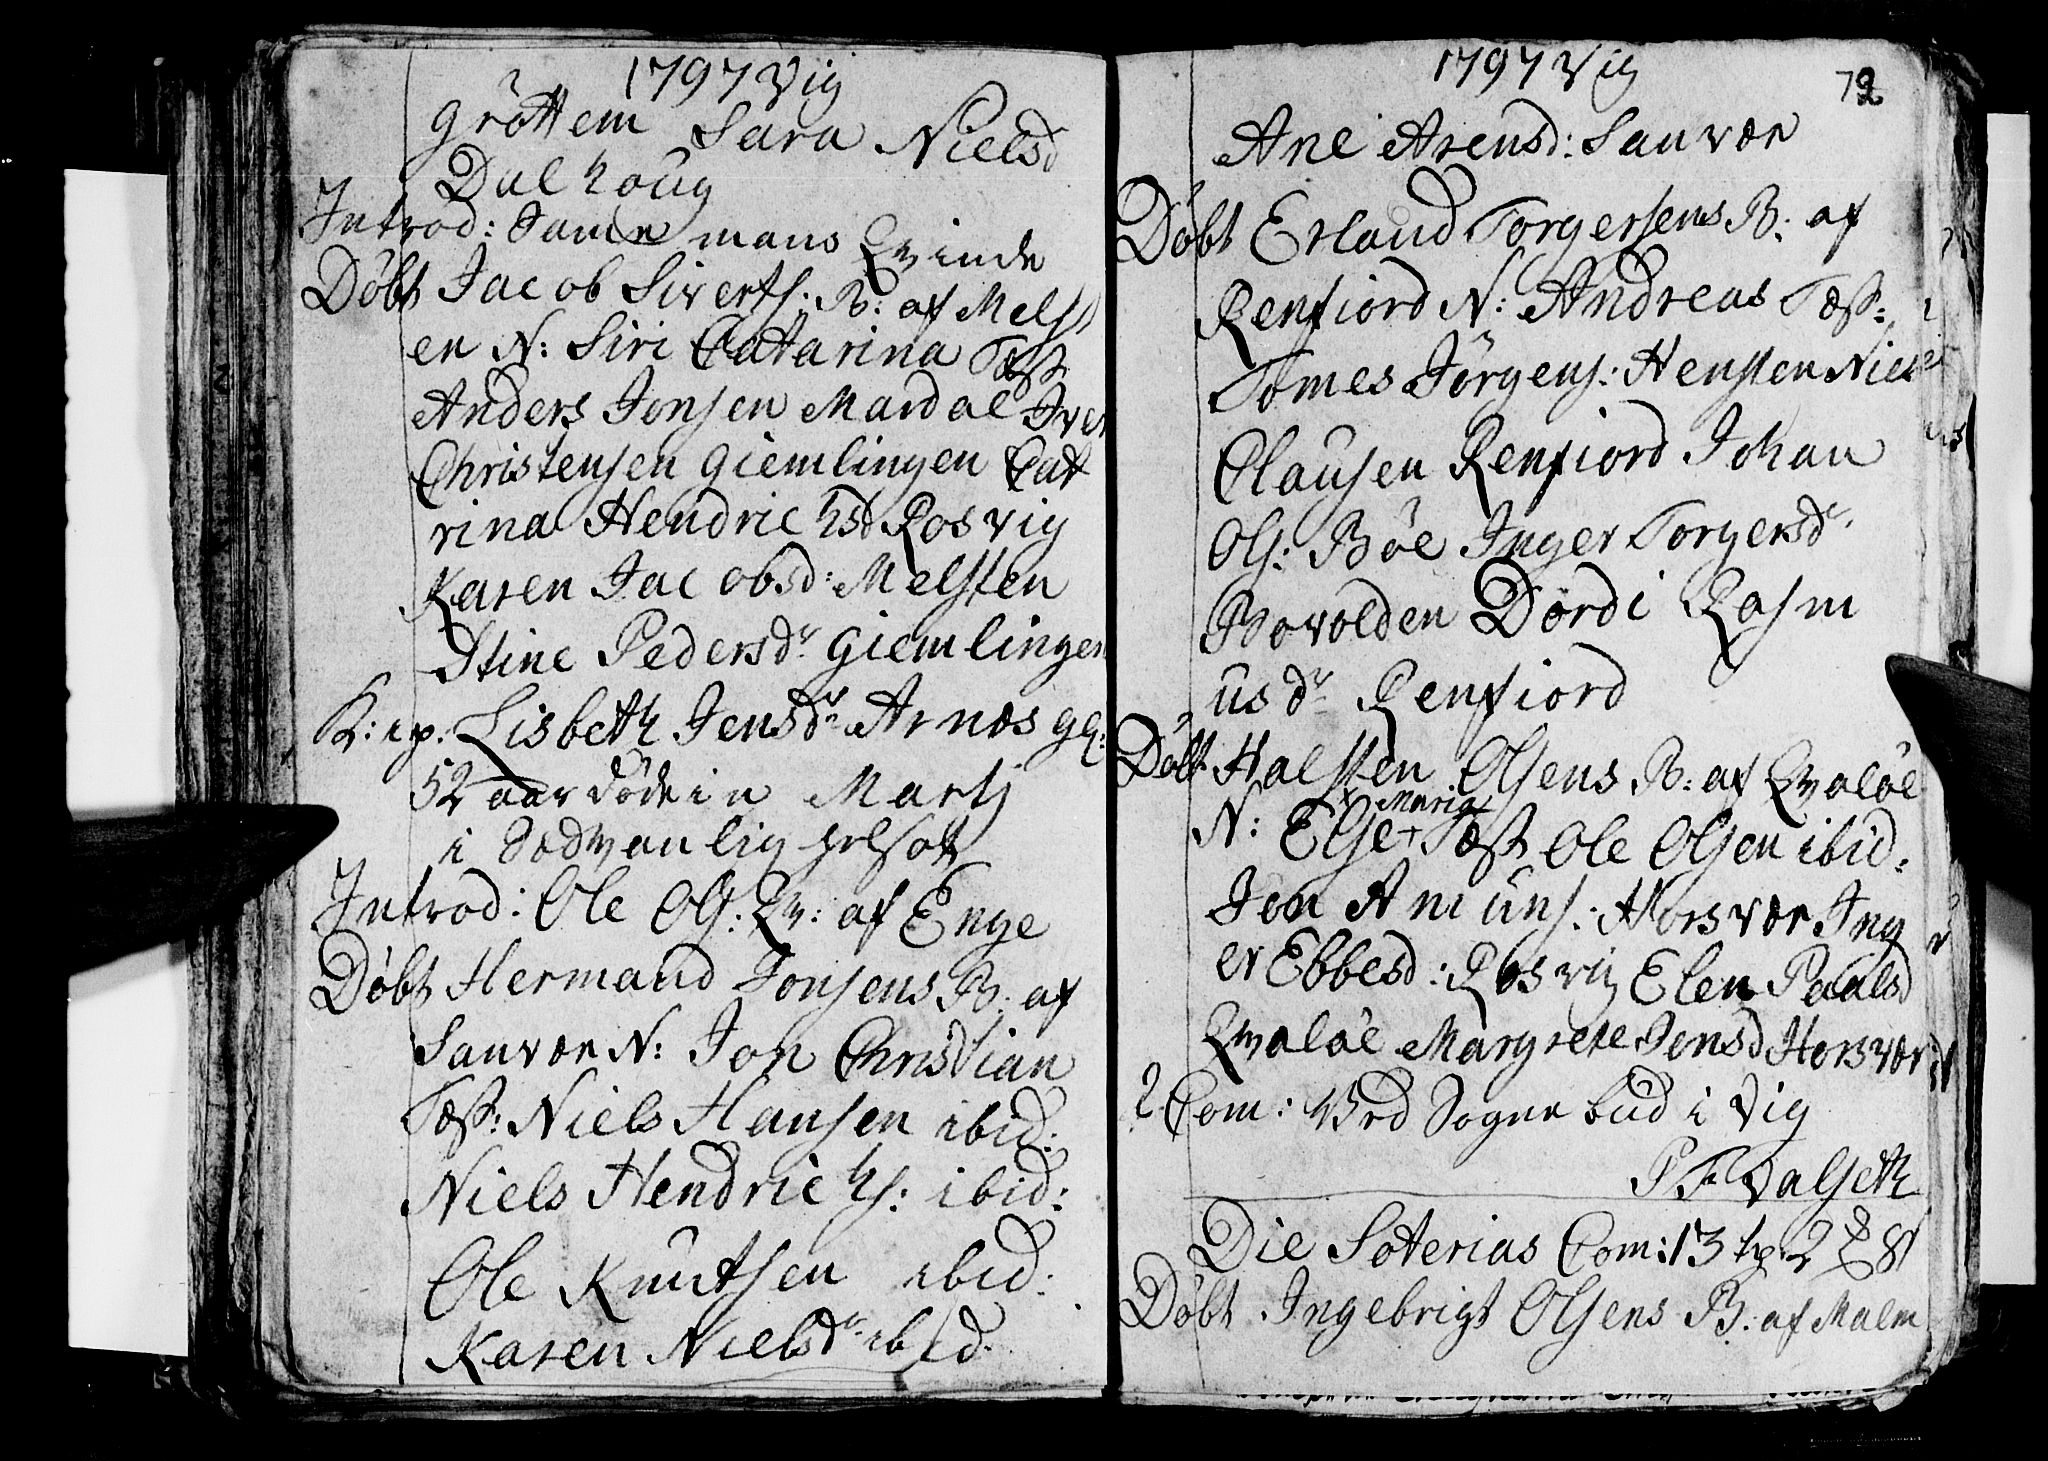 1797 Vig
Gröttem Sara Nielsd
Dalhoug
Introd: Samme mans Qvinde
Döbt Jacob Siverts: B: af Melst
en N: Siri Catarina Tæst
Anders Jonsen Mardal Iver
Christensen Giemlingen Cat
rina Hendrichsd Rosvig
Karen Jacobsd: Melsten
Stine Pedersdr Giemlingen
K: ep. Lisbeth Jensdr Arnæs gl:
52 aar döde in Martj
i Sædvanlig
Introd: Ole Ols: Qv: af Enge
Döbt Hermand Jonsens B: af
Sauvær N: Jon Christian
Tæst: Niels Hansen ibid:
Niels Hendrichs: ibid:
Ole Knutsen ibid:
Karen Nielsdr ibid.
1797 Vig
72
Ane Arensd: Sauvær
Döbt Erland Torgersens B: af
Renfiord N: Andreas Tæst:
Tomes Jörgens: Hensten Niels
Clausen Renfiord Johan
Ols: Böe Inger Torgersdr
Bovolden Dordi Rasm
usdr Renfiord
Döbt Halsten Olsens B: af Qvalöe
Marig
N: Else + Tæst Ole Olsen ibid:
Jon Amuns: Horsvær Ing
er Ebbesd: Rosvig Elen Paalsd
Qvalöe Margrete Jensd Horsvær
2 Com: Ved Sognebud i Vig
P F Valseth
Die Soterias Com: 13 tp 2
Döbt Ingebrigt Olsens B: af Malm